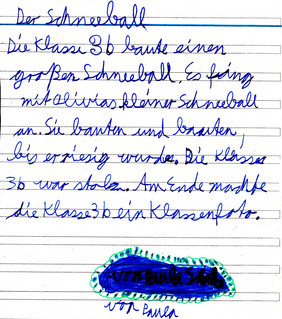 Der Schneeball
Die Klasse 3b baute einen
großen Schneeball. Es fing
mit Olivias kleiner Schneeball
an. Sie bauten und bauten,
bis er riesig wurde. Die Klasse
3b war stolz. Am Ende machte
die Klasse 3b ein Klassenfoto.
von
von